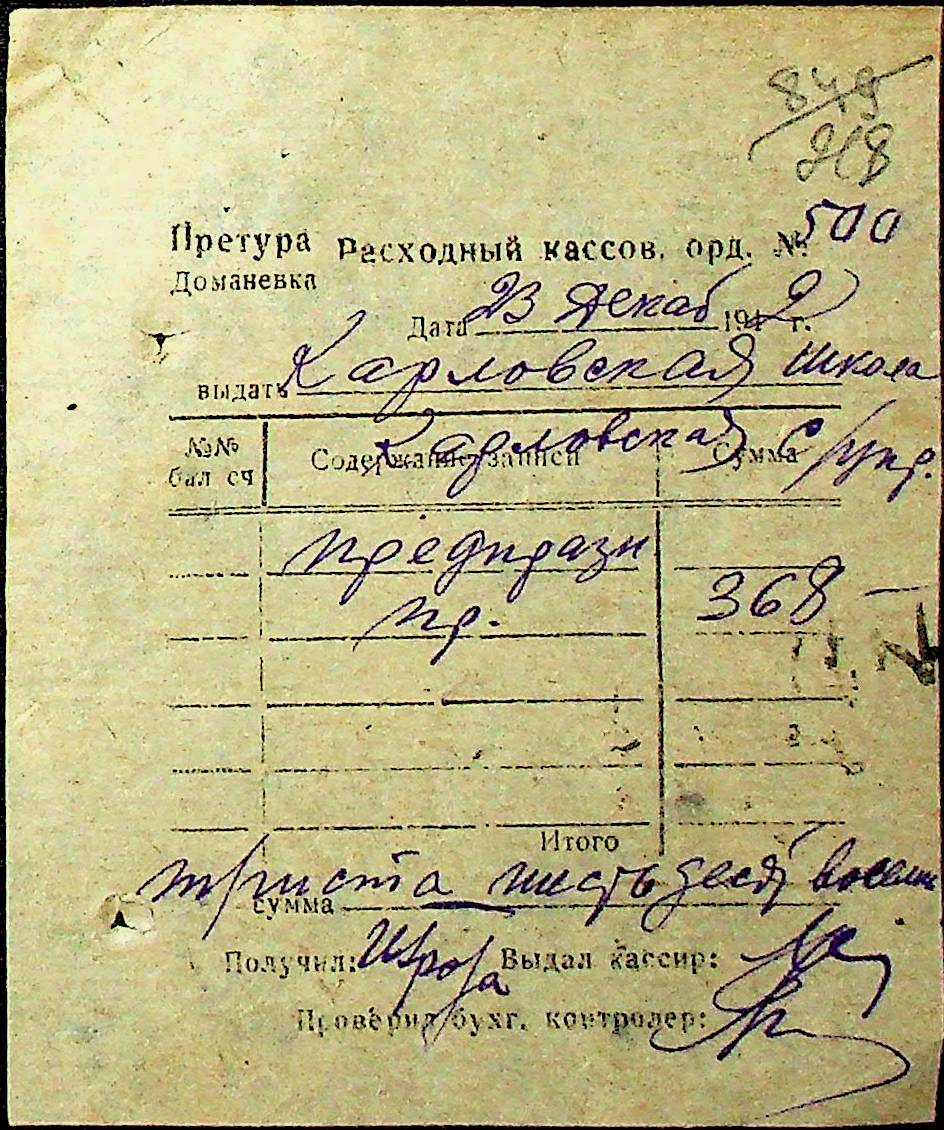 849
368
Претура Расходный кассов. орд. № 500
Доманевка
Дата 23 Декаб 1942 г.
выдать Карловская школа
Карловская с/упр.
№№ Содержание записи Сумма
бал сч
предпразн
пр. 368 —
Итого
триста шестьдесят восемь
сумма
Получил: Выдал кассир:
Проверил бухг. контролер: